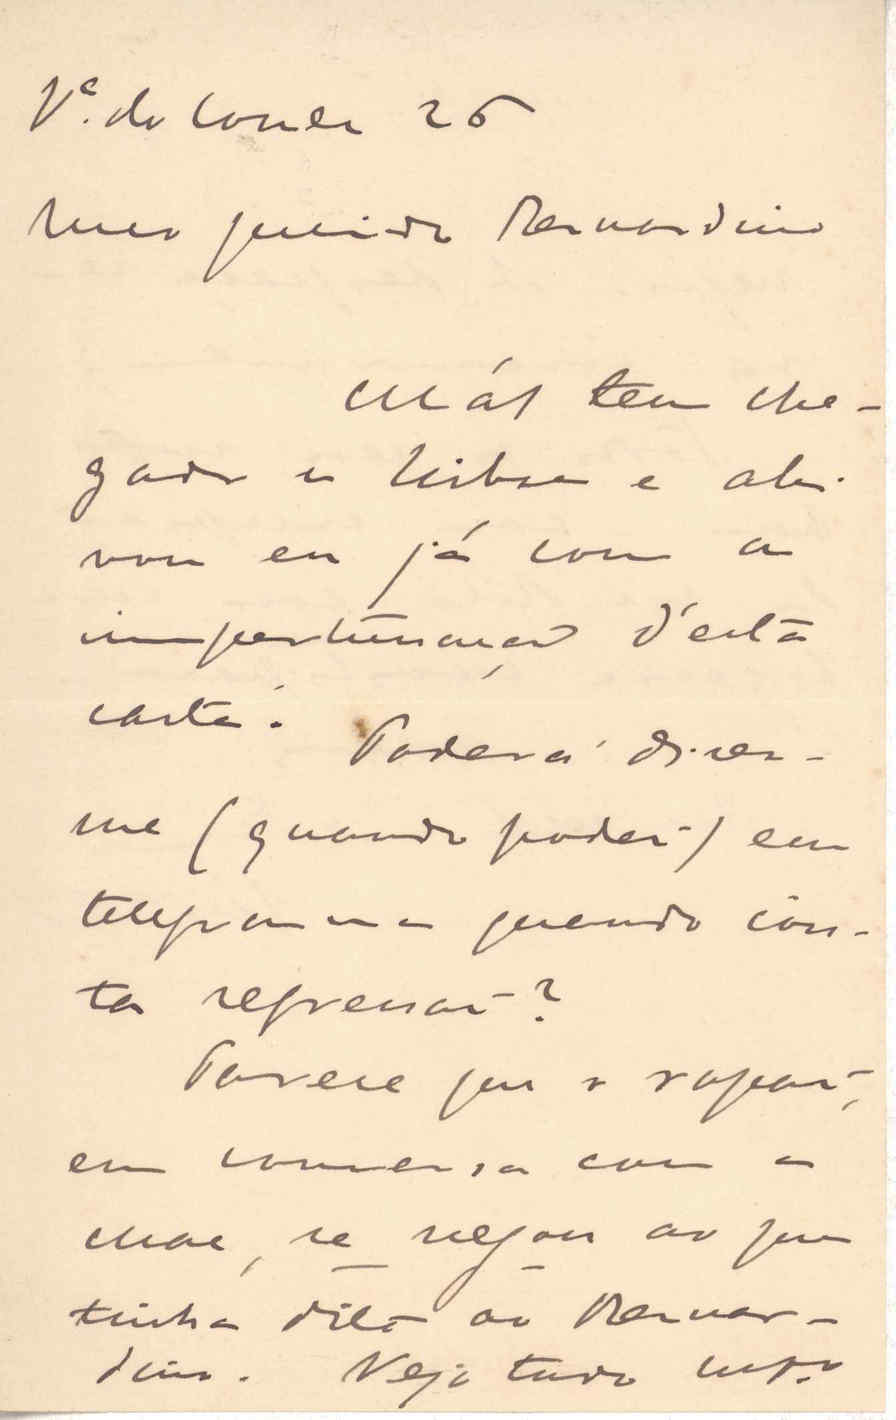 Vª. do Conde 26
Meu querido Bernardino
Mál tem che-
gado a Lisboa e ahi
vou eu já com a
impertinencia d'esta
carta. Poderá dizer-
me (quando poder) em
telegramma quando con-
ta regressar?
Parece que o rapaz,
em conversa com a
mãe, se negou ao que
tinha dito ao Bernar-
dino. Vejo tudo